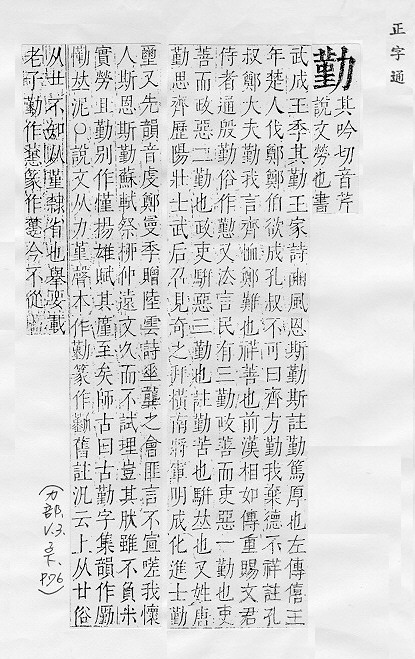 正字通
勤
其吟切音芹
說文勞也書
武成王季其勤王家詩豳風恩斯勤斯註勤篤厚也左傳僖王
年楚人伐鄭鄭伯欲成孔叔不可曰齊方勤我棄德不祥註孔
叔鄭大夫勤我言齊恤鄭難也祥善也前漢相如傳重賜文君
侍者通殷勤俗作懃又法言民有三勤政善而吏惡一勤也吏
善而政惡二勤也政吏駢惡三勤也註勤苦也駢𠀤也又姓唐
勤思齊歷陽壯士武后召見奇之拜橫南將軍明成化進士勤
璽又先韻音虔鄭曼季贈陸雲詩龔之會匪言不宣嗟我懷
人斯恩斯勤蘇軾祭柳仲遠文久而不試理豈其肰雖不負米
實勞且勤別作慬揚雄賦其廑至矣師古曰古勤字集韻作
𠀤泥○說文从力堇聲木作勤篆作舊註沉云上从廿俗
从廿不如从堇隸省也舉要載
老子勤作懃篆作今不從
(力部.V.3. P.76)